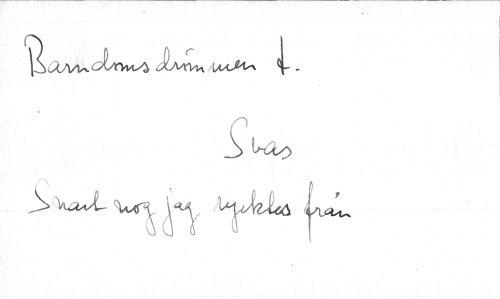 Barndomsdrömmen t.
Svas
Snart nog jag ryckles från